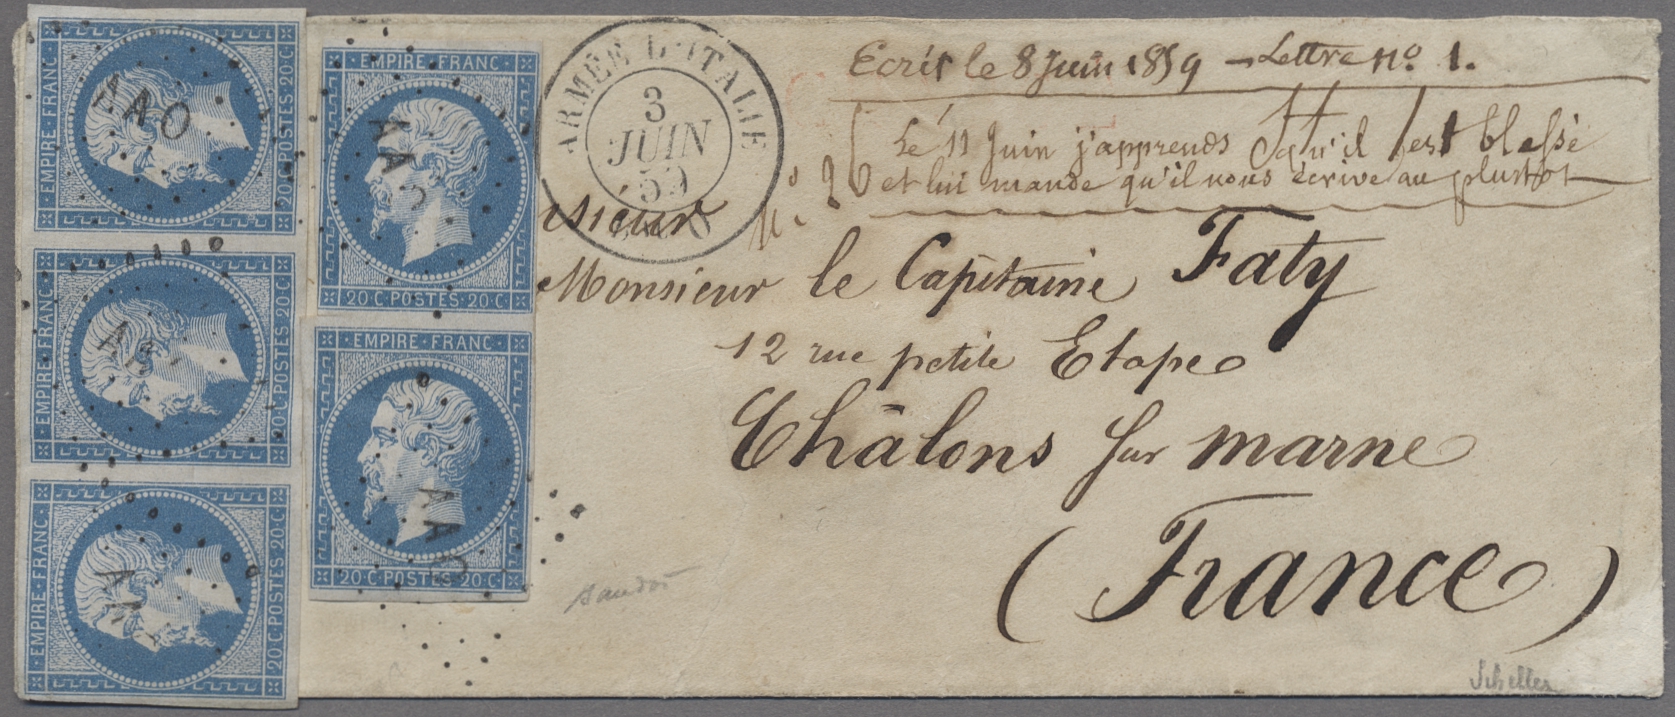 EMPIRE·FRANC·
20·C·POSTES·20·C·
AAO
EMPIRE·FRANC·
20·C·POSTES·20·C·
AA
EMPIRE·FRANC·
20·C·POSTES·20·C·
EMPIRE·FRANC·
20·C·POSTES·20·C·
AA
EMPIRE·FRANC·
20·C·POSTES·20·C·
AAC
ARMÉE D'ITALIE
3
JUIN
59
Ecrit le 8 Juin 1859 — Lettre no. 1.
Le 11 Juin j'apprends qu'il est blessé
et lui mande qu'il nous écrive au plustot
sieur
Monsieur le Capitaine Faty
12 rue petite Etape
Châlons sur marne
(France)